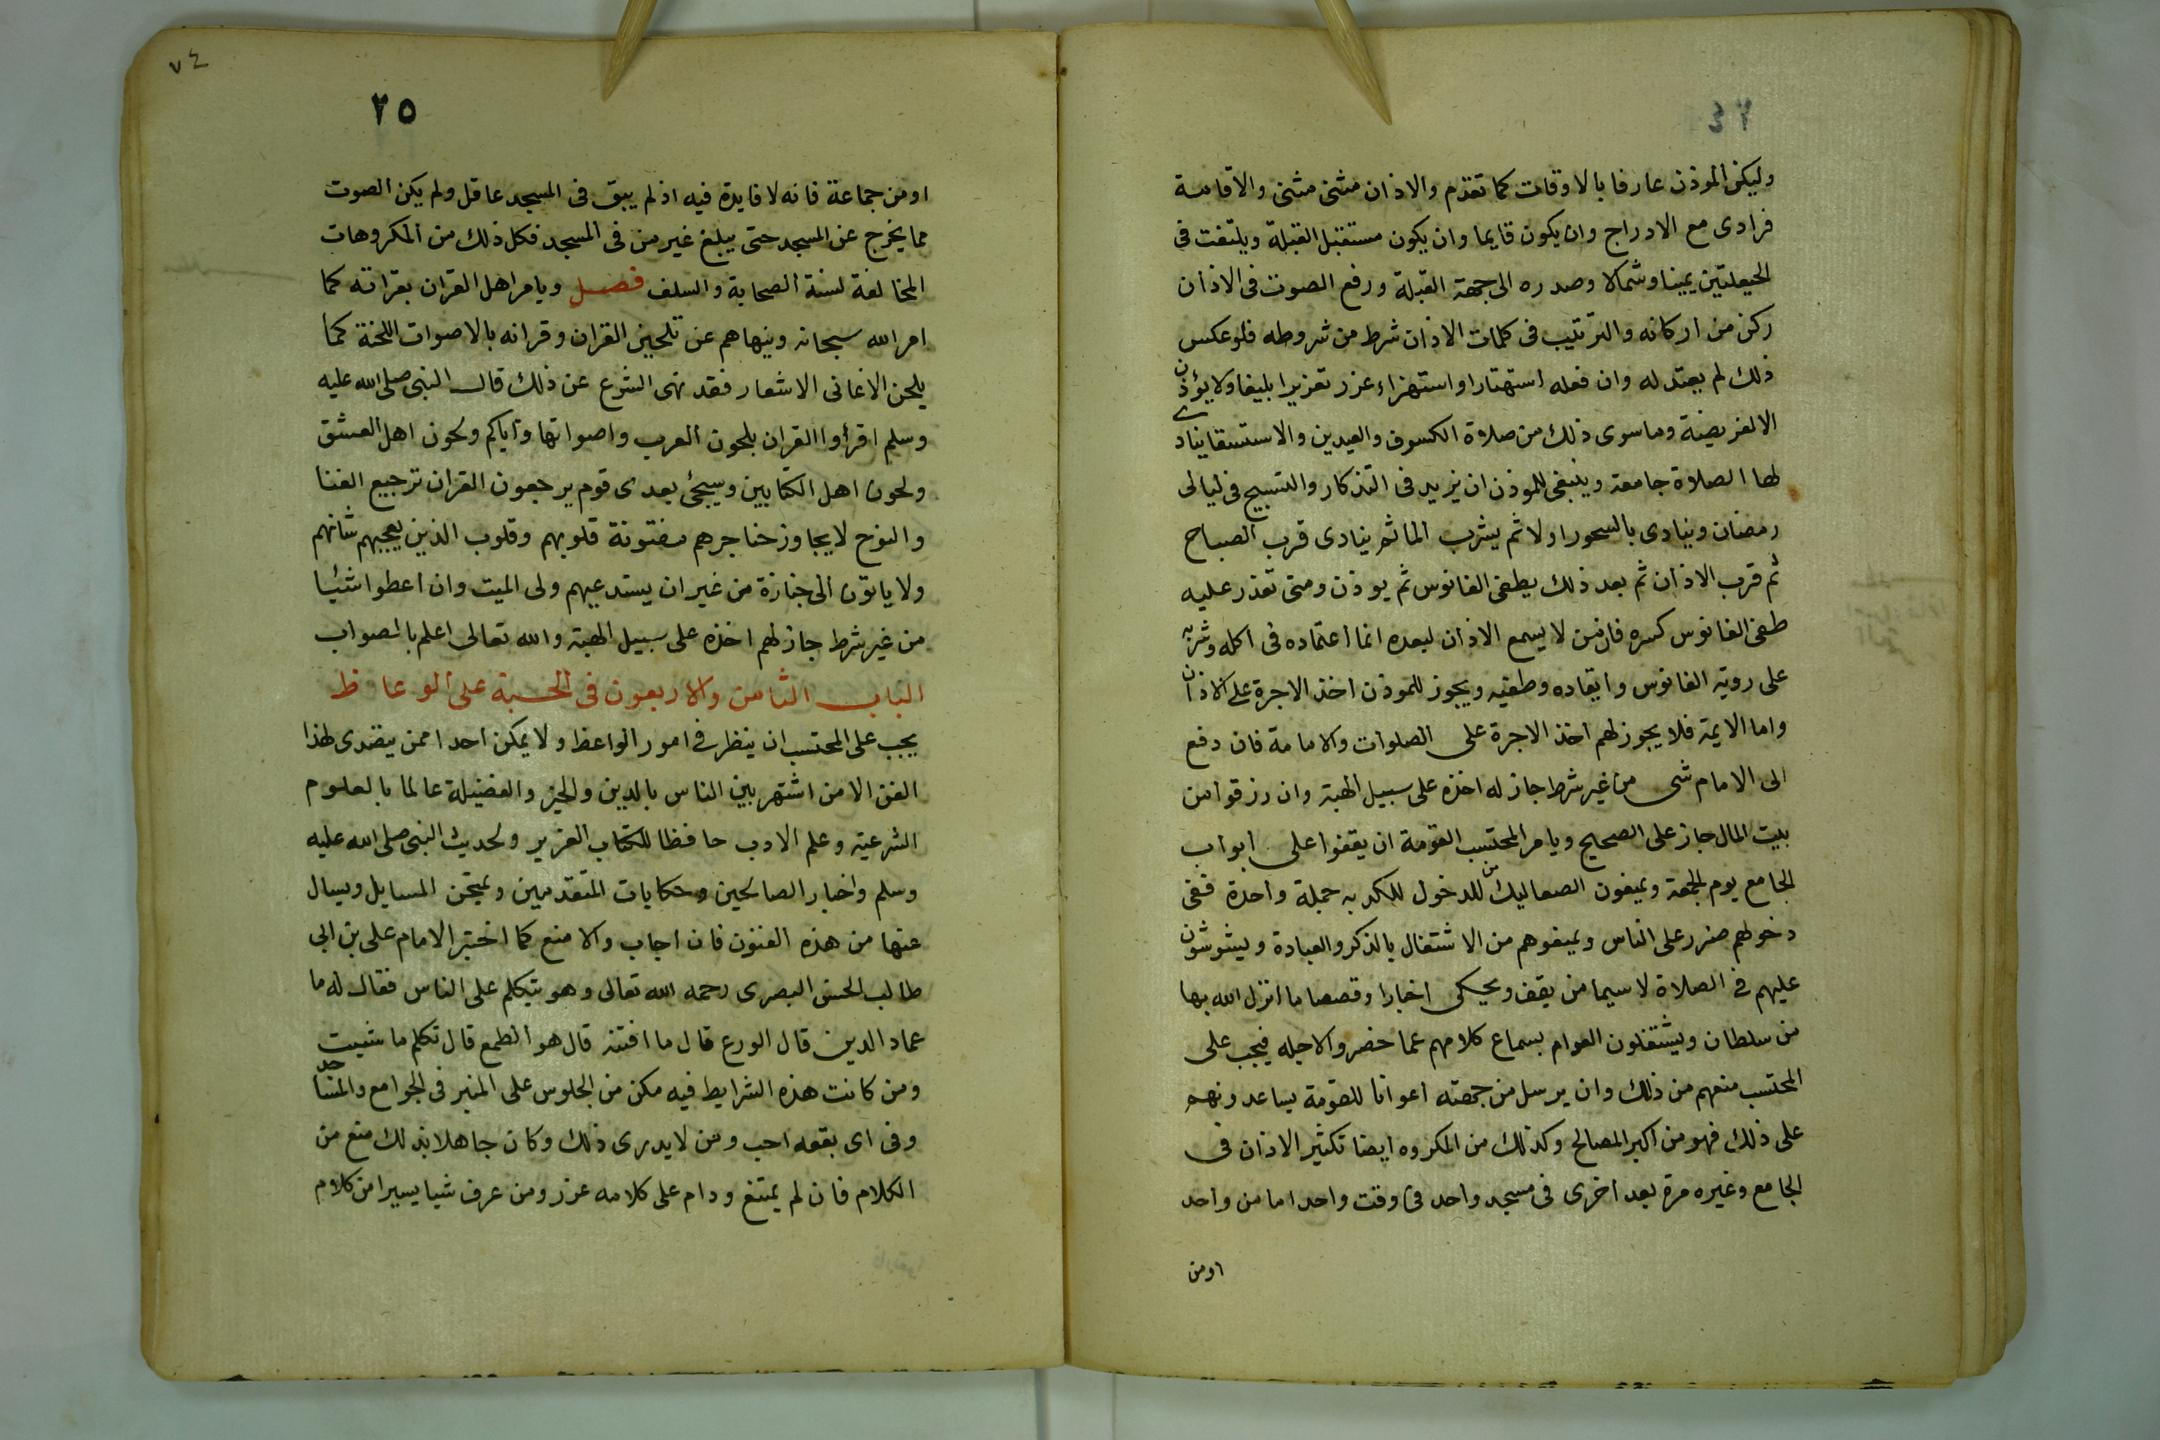 وليكن الموذن عارفا بالاوقات كما تقدم والاذان مثنى مثنى والاقامة
فرادى مع الادراج وان يكون قايما وان يكون مستقبل القبلة ويلتفت فى
الحيعلتين يمينا وشمالا وصدره الى جهة القبلة ورفع الصوت فى الاذان
ركن من اركانه والترتيب فى كلمات الاذان شرط من شروطه فلو عكس
ذلك لم يعتد له وان فعله استهتارا واستهزاء عزر تعزيرا بليغا ولا يؤذن
الا لفريضة وما سوى ذلك من صلاة الكسوف والعيدين والاستسقا ينادى
لها الصلاة جامعة وينبغى للموذن ان يزيد فى التذكار والتسبيح فى ليالى
رمضان وينادى بالسحور اولا ثم يشرب الما ثم ينادى قرب الصباح
ثم قرب الاذان ثم بعد ذلك يطفى الفانوس ثم يوذن ومتى تعذر عليه
طفى الفانوس كسره فان من لا يسمع الاذان لبعده انما اعتماده فى اكله وشربه
على روية الفانوس وايقاده وطفيه ويجوز للموذن اخذ الاجرة على الاذان
واما الايمة فلا يجوز لهم اخذ الاجرة على الصلوات والامامة فان دفع
الى الامام شى من غير شرط جاز له اخذه على سبيل الهبة وان رزقوا من
بيت المال جاز على الصحيح ويامر المحتسب القومة ان يقفوا على ابواب
الجامع يوم الجمعة ويمنعون الصعاليك من للدخول للكديه جملة واحدة ففى
دخولهم ضرر على الناس ويمنعوهم من الاشتغال بالذكر والعبادة ويشوشون
عليهم فى الصلاة لا سيما من يقف ويحكى اخبارا وقصصا ما انزل الله بها
من سلطان ويشتغلون العوام بسماع كلامهم عما حضروا لاجله فيجب على
المحتسب منعهم من ذلك وان يرسل من جهته اعوانا للقومة يساعدونهم
على ذلك فهو من اكبر المصالح وكذلك من المكروه ايضا تكثير الاذان فى
الجامع وغيره مرة بعد اخرى فى مسجد واحد فى وقت واحد اما من واحد
اومن
٧٤
٢٥
اومن جماعة فانه لا فايدة فيه اذ لم يبق فى المسجد عاقل ولم يكن الصوت
مما يخرج عن المسجد حتى يبلغ غير من فى المسجد فكل ذلك من المكروهات
المخالفة لسنة الصحابة والسلف فصل ويامر اهل القران بقراته كما
امر الله سبحانه وينهاهم عن تلحين القران وقرانه بالاصوات اللحنة كما
يلحن الاغانى الاشعار فقد نهى الشرع عن ذلك قال النبى صلى الله عليه
وسلم اقرأوا القران بلحون العرب واصواتها واياكم ولحون اهل العشق
ولحون اهل الكتابين وسيجئ بعدى قوم يرجعون القران ترجيع الغنا
والنوح لا يجاوز حناجرهم مفتونة قلوبهم وقلوب الذين يعجبهم شانهم
ولا ياتون الى جنازة من غير ان يستدعيهم ولى الميت وان اعطوا شئيا
من غير شرط جاز لهم اخذه على سبيل الهبة والله تعالى اعلم بالصواب
الباب الثامن والاربعون فى الحسبة على الوعاظ
يجب على المحتسب ان ينظر فى امور الواعظ ولا يمكن احدا ممن يتصدى لهذا
الفن الا من اشتهر بين الناس بالدين والخير والفضيلة عالما بالعلوم
الشرعية وعلم الادب حافظا للكتاب العزيز ولحديث النبى صلى الله عليه
وسلم واخبار الصالحين وحكايات المتقدمين ويمتحن المسايل ويسال
عنها من هذه الفنون فان اجاب والا منع كما اختبر الامام على بن ابى
طالب الحسن البصرى رحمه الله تعالى وهو يتكلم على الناس فقال له ما
عماد الدين قال الورع قال ما افتنه قال هو الطمع قال تكلم ما شيت
ومن كانت هذه الشرايط فيه مكن من الجلوس على المنبر فى الجوامع والمساجد
وفى اى بقعه احب ومن لا يدرى ذلك وكان جاهلا بذلك منع من
الكلام فان لم يمتنع ودام على كلامه عزر ومن عرف شيا يسيرا من كلام